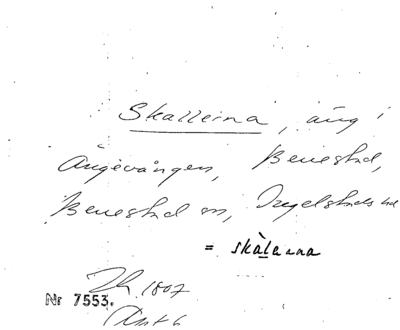 Skalleina, äng i
Ängavången, Benestad,
Benestad sn, Ingelstads hd
= skàlanna
1807
Nr 7553.